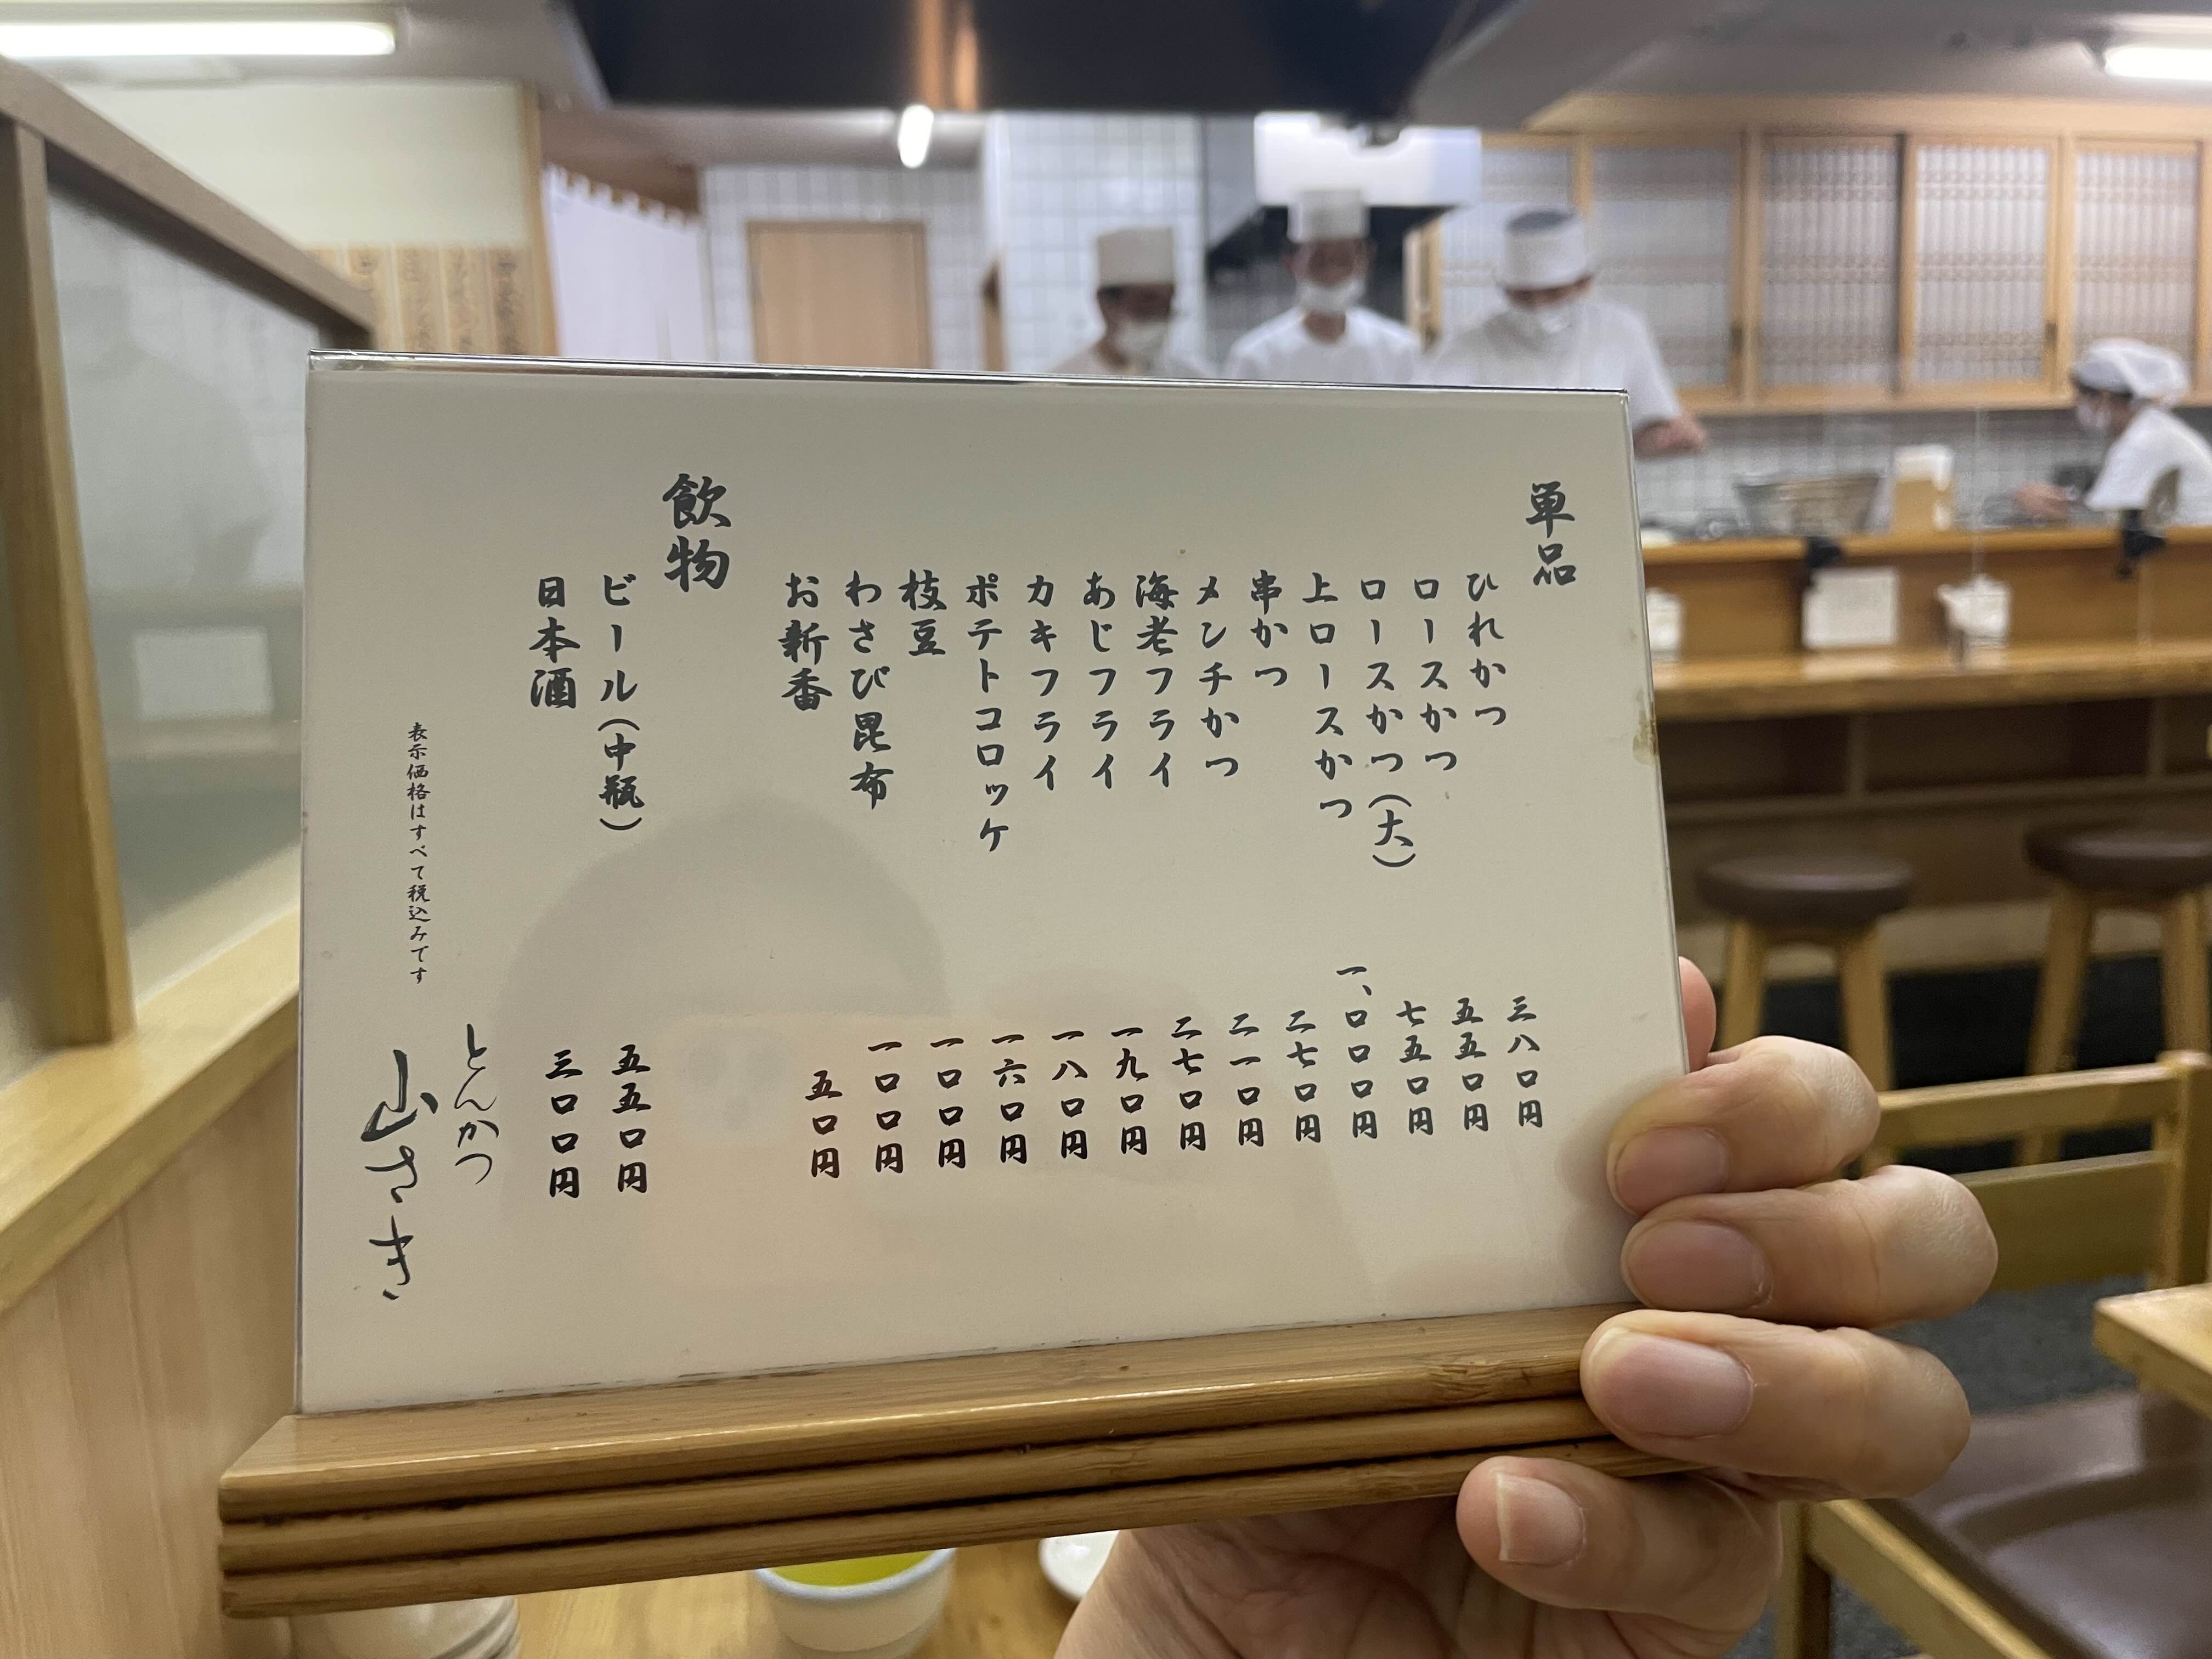 単品
ひれかつ 三八〇円
ロースかつ 五五〇円
ロースかつ(大) 七五〇円
上ロースかつ 一、〇〇〇円
串かつ 二七〇円
メンチかつ 二一〇円
海老フライ 二七〇円
あじフライ 一九〇円
カキフライ 一八〇円
ポテトコロッケ 一六〇円
枝豆 一〇〇円
わさび昆布 一〇〇円
お新香 五〇円
飲物
ビール(中瓶) 五五〇円
日本酒 三〇〇円
表示価格はすべて税込みです
とんかつ
山さき